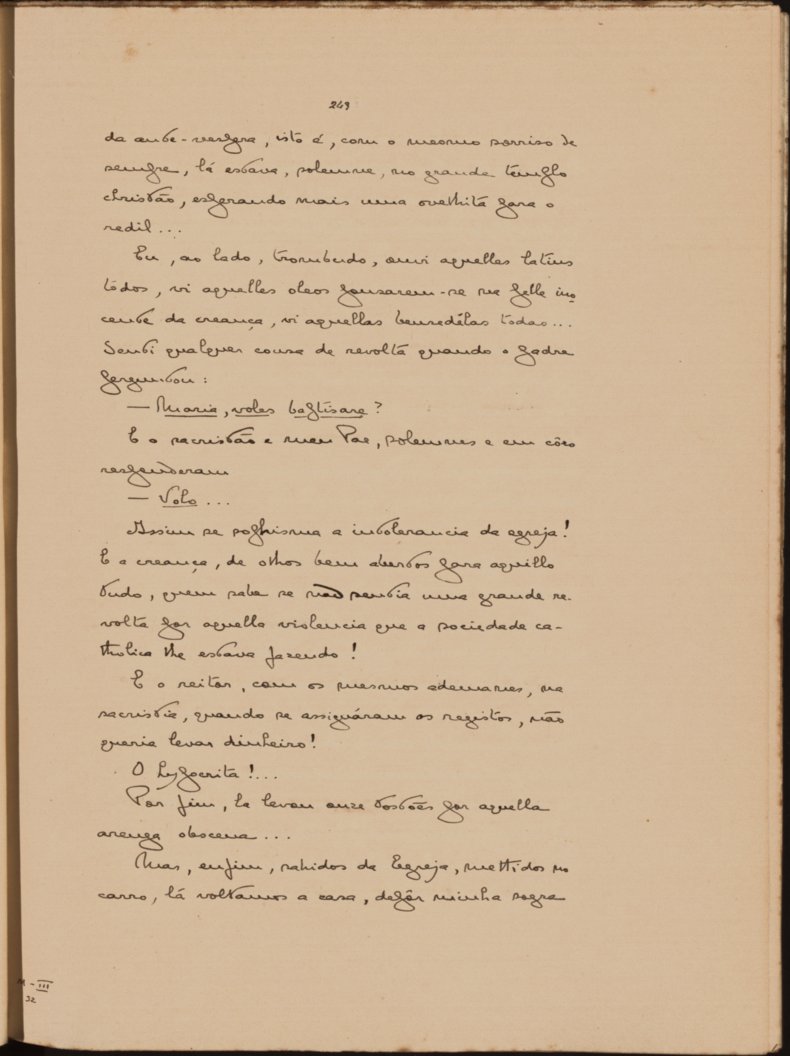 249
da ante-vespera, isto é, com o mesmo sorriso de
sempre, lá estava, solemne, no grande templo
christão, esperando mais uma ovelhita para o
redil...
Eu, ao lado, trombudo, ouvi aquelles latins
todos, vi aquelles oleos pousarem-se na pelle ino
cente da creança, vi aquellas benzedélas todas...
Senti qualquer cousa de revolta quando o padre
perguntou:
— Maria, voles baptisare?
E o sacristão e meu Pae, solemnes e em côro
responderam
— Volo...
Assim se sophisma a intolerancia da egreja!
E a creança, de olhos bem abertos para aquillo
tudo, quem sabe se não sentia uma grande re-
volta por aquella violencia que a sociedade ca-
tholica lhe estava fazendo!
E o reitor, com os mesmos ademanes, na
sacristia, quando se assignáram os registos, não
queria levar dinheiro!
O hypocrita!...
Por fim, lá levou onze tostões por aquella
arenga obscena...
Mas, enfim, sahidos da Egreja, mettidos no
carro, lá voltamos a casa, depôr minha sogra
M-III
32